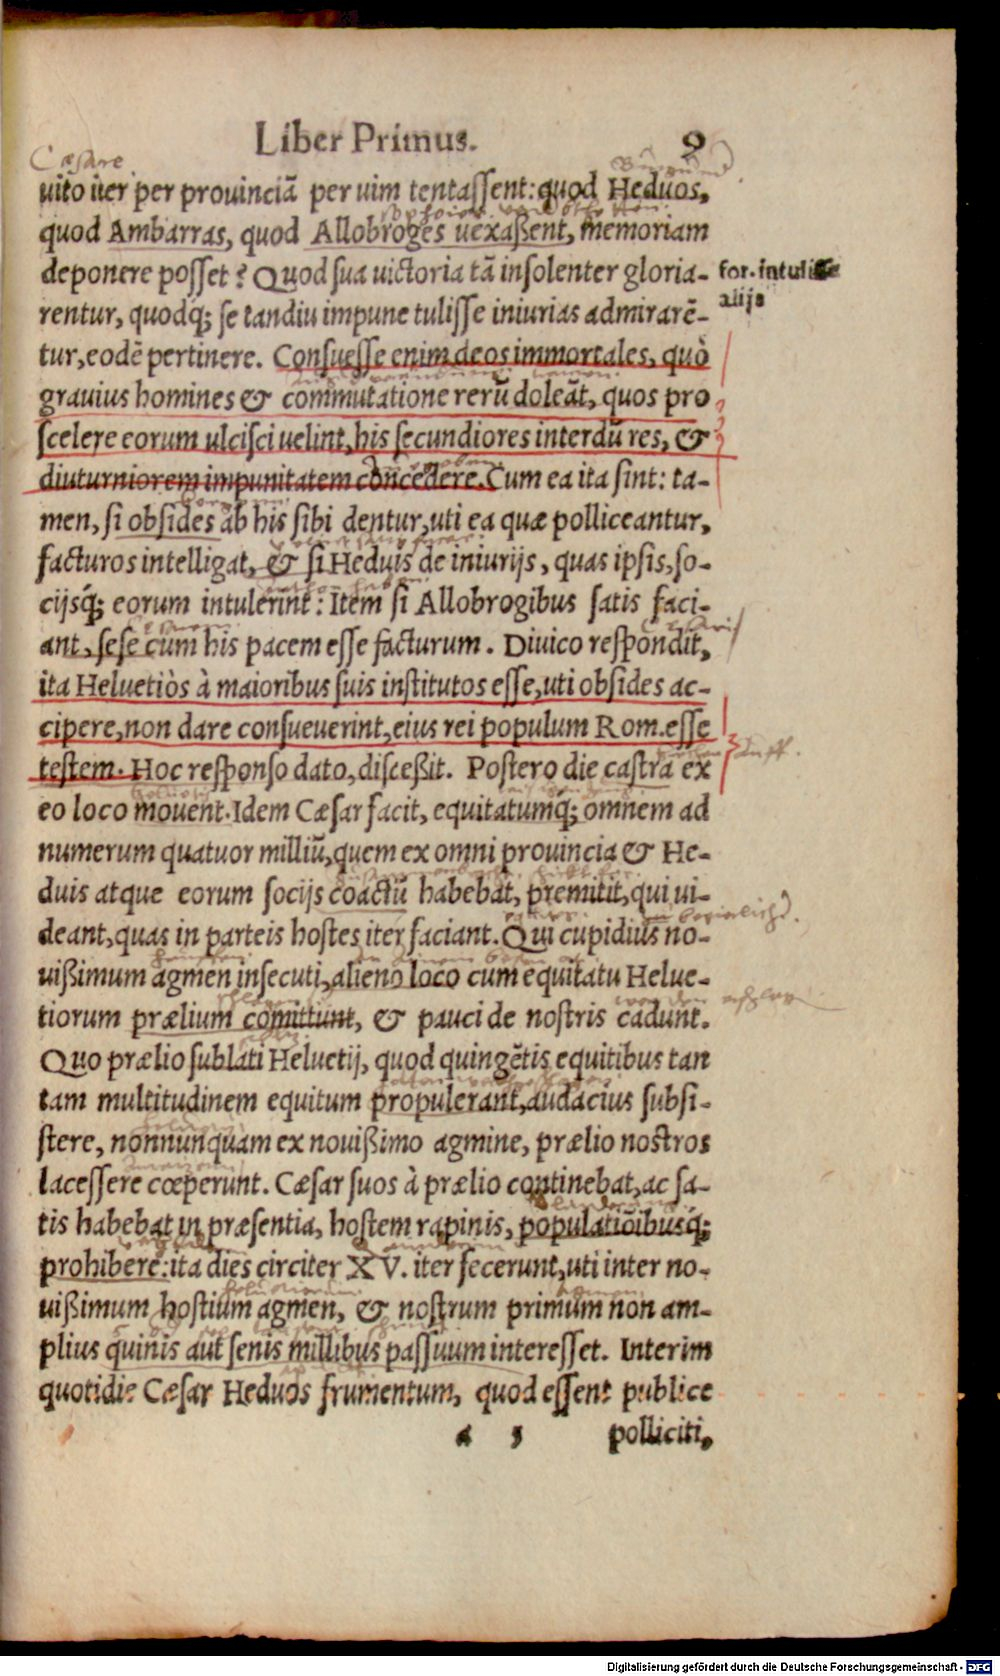 Liber Primus. 9
Cæsare
uito iter per prouinciā per uim tentaſſent: quod Heduos,
quod Ambarras, quod Allobroges uexaßent, memoriam
deponere poſſet? Quod ſua uictoria tā inſolenter gloria-
for. intuliſſe
alijs
rentur, quodq́; ſe tandiu impune tuliſſe iniurias admirarē-
tur, eodē pertinere. Conſueſſe enim deos immortales, quò
grauius homines & commutatione rerū doleāt, quos pro
ſcelere eorum ulciſci uelint, his ſecundiores interdū res, &
diuturniorem impunitatem concedere. Cum ea ita ſint: ta-
men, ſi obſides ab his ſibi dentur, uti ea quæ polliceantur,
facturos intelligat, & ſi Heduis de iniurijs, quas ipſis, ſo-
cijsq́; eorum intulerint: Item ſi Allobrogibus ſatis faci-
ant, ſeſe cum his pacem eſſe facturum. Diuico reſpondit,
ita Heluetiòs à maioribus ſuis inſtitutos eſſe, uti obſides ac-
cipere, non dare conſueuerint, eius rei populum Rom. eſſe
teſtem. Hoc reſponſo dato, diſceßit. Poſtero die caſtra ex
eo loco mouent. Idem Cæſar facit, equitatumq́; omnem ad
numerum quatuor milliū, quem ex omni prouincia & He-
duis atque eorum ſocijs coactū habebat, premittit, qui ui-
deant, quas in parteis hoſtes iter faciant. Qui cupidius no-
uißimum agmen inſecuti, alieno loco cum equitatu Helue-
tiorum prælium comittunt, & pauci de noſtris cadunt.
Quo prælio ſublati Heluetij, quod quingētis equitibus tan
tam multitudinem equitum propulerant, audacius ſubſi-
ſtere, nonnunquam ex nouißimo agmine, prælio noſtros
laceſſere cœperunt. Cæſar ſuos à prælio continebat, ac ſa-
tis habebat in præſentia, hoſtem rapinis, populatiōibusq́;
prohibere: ita dies circiter XV. iter fecerunt, uti inter no-
uißimum hoſtium agmen, & noſtrum primum non am-
plius quinis aut ſenis millibus paſſuum intereſſet. Interim
quotidie Cæſar Heduos frumentum, quod eſſent publice
a 5 polliciti,
Digitalisierung gefördert durch die Deutsche Forschungsgemeinschaft - DFG